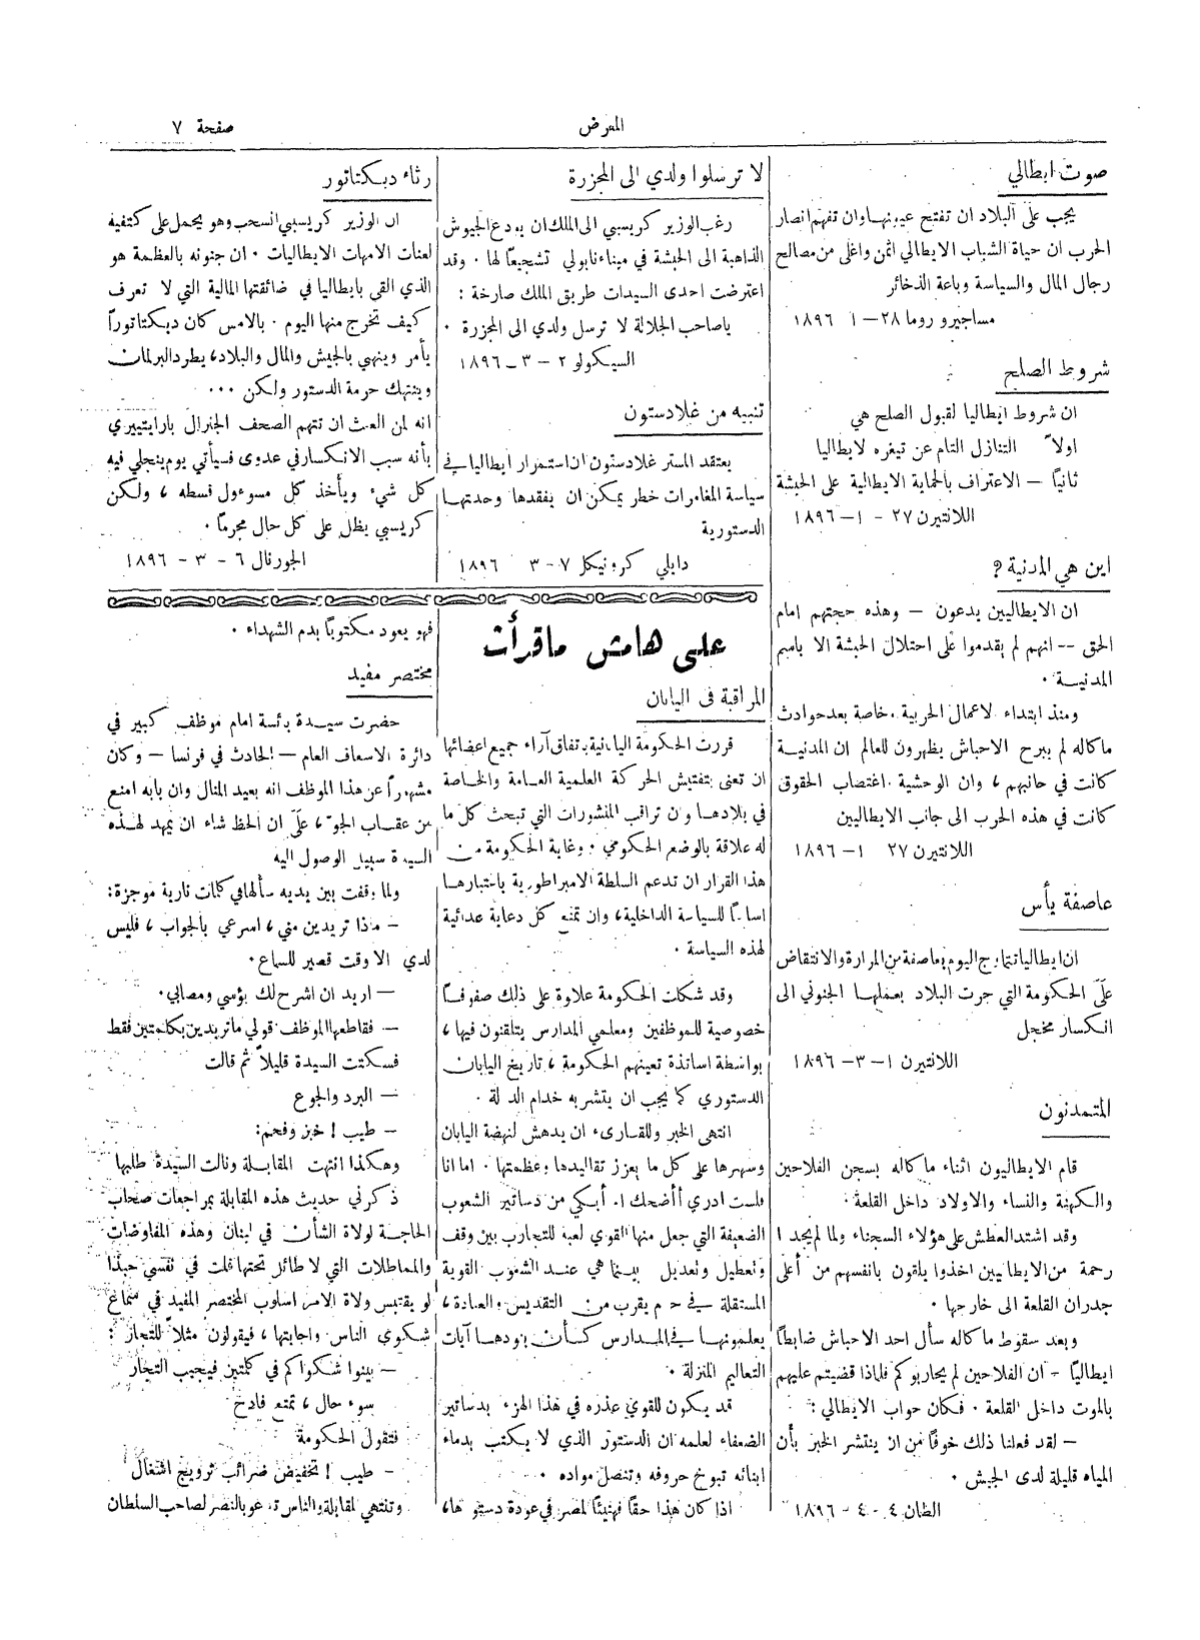 المعرض
صفحة ٧
صوت ايطالي
يجب على البلاد ان تفتح عيونها وان تفهم انصار
الحرب ان حياة الشباب الايطالي اثمن واغلى من مصالح
رجال المال والسياسة وباعة الذخائر
مساجيرو روما ٢٨ – ١ ١٨٩٦
شروط الصلح
ان شروط ايطاليا لقبول الصلح هي
اولاً التنازل التام عن تيغره لايطاليا
ثانيًا – الاعتراف بالحماية الايطالية على الحبشة
اللانتيرن ٢٧ - ١ – ١٨٩٦
اين هي المدنية ؟
ان الايطاليين يدعون – وهذه حجتهم امام
الحق -- انهم لم يقدموا على احتلال الحبشة الا باسم
المدنية ٠
ومنذ ابتداء الاعمال الحربية ، خاصة بعد حوادث
ماكاله لم يبرح الاحباش يظهرون للعالم ان المدنية
كانت في جانبهم ، وان الوحشية اغتصاب الحقوق
كانت في هذه الحرب الى جانب الايطاليين
اللانتيرن ٢٧ ١ – ١٨٩٦
عاصفة يأس
ان ايطاليا اليوم بعاصفة من المرارة والانتقاض
على الحكومة التي جرت البلاد بعملها الجنوني الى
انكسار مخجل
اللانتيرن ١ – ٣ – ١٨٩٦
المتمدنون
قام الايطاليون اثناء ماكاله بسجن الفلاحين
والكهنة والنساء والاولاد داخل القلعة ٠
وقد اشتد العطش على هؤلاء السجناء ولما لم يجدوا
رحمة من الايطاليين اخذوا يلقون بانفسهم من أعلى
جدران القلعة الى خارجها ٠
وبعد سقوط ماكاله سأل احد الاحباش ضابطًا
ايطاليًا - ان الفلاحين لم يحاربوكم فلماذا قضيتم عليهم
بالموت داخل القلعة ٠ فكان جواب الايطالي :
– لقد فعلنا ذلك خوفًا من ان ينتشر الخبر بأن
المياه قليلة لدى الجيش ٠
الطان ٤ - ٤ - ١٨٩٦
لا ترسلوا ولدي الى المجزرة
رغب الوزير كريسبي الى الملك ان يودع الجيوش
الذاهبة الى الحبشة في ميناء نابولي تشجيعًا لها ٠ وقد
اعترضت احدى السيدات طريق الملك صارخة :
ياصاحب الجلالة لا ترسل ولدي الى المجزرة ٠
السيكولو ٢ – ٣ – ١٨٩٦
تنبيه من غلادستون
يعتقد المستر غلادستون ان استمرار ايطاليا في
سياسة المغامرات خطر يمكن ان يفقدها وحدتها
الدستورية
دايلي كرونيكل ٧ – ٣ ١٨٩٦
رثاء ديكتاتور
ان الوزير كريسبي انسحب وهو يحمل على كتفيه
لعنات الامهات الايطاليات ٠ ان جنونه بالعظمة هو
الذي القى بايطاليا في ضائقتها المالية التي لا تعرف
كيف تخرج منها اليوم ٠ بالامس كان ديكتاتوراً
يأمر وينهي بالجيش والمال والبلاد، يطرد البرلمان
وينتهك حرمة الدستور ولكن ٠٠٠
انه لمن العبث ان تتهم الصحف الجنرال باراتييري
بأنه سبب الانكسار في عدوى فسيأتي يوم ينجلي فيه
كل شيء ويأخذ كل مسوءول قسطه ، ولكن
كريسبي يظل على كل حال مجرمًا ٠
الجورنال ٦ - ٣ - ١٨٩٦
على هامش ماقرأت
المراقبة في اليابان
قررت الحكومة اليابانية باتفاق آراء جميع اعضائها
ان تعنى بتفتيش الحركة العلمية العامة والخاصة
في بلادها وان تراقب المنشورات التي تبحث كل ما
له علاقة بالوضع الحكومي ٠ وغاية الحكومة من
هذا القرار ان تدعم السلطة الامبراطورية باعتبارها
اساسًا للسياسة الداخلية، وان تمنع كل دعاية عدائية
لهذه السياسة ٠
وقد شكلت الحكومة علاوة على ذلك صفوفًا
خصوصية للموظفين ومعلمي المدارس يتلقنون فيها ،
بواسطة اساتذة تعينهم الحكومة ، تاريخ اليابان
الدستوري كما يجب ان يتشربه خدام الدولة ٠
انتهى الخبر وللقارىء ان يدهش لنهضة اليابان
وسهرها على كل ما يعزز تقاليدها وعظمتها ٠ اما انا
فلست ادري أأضحك ام أبكي من دساتير الشعوب
الضعيفة التي جعل منها القوي لعبة للتجارب بين وقف
وتعطيل وتعديل بينما هي عند الشعوب القوية
المستقلة في حرم يقرب من التقديس والعبادة ،
يعلمونها في المدارس كأن بنودها آيات
التعاليم المنزلة ٠
قد يكون للقوي عذره في هذا الهزء بدساتير
الضعفاء لعلمه ان الدستور الذي لا يكتب بدماء
ابنائه تبوخ حروفه وتنصل مواده ٠
اذا كان هذا حقًا فهنيئًا لمصر في عودة دستورها،
فهو يعود مكتوبًا بدم الشهداء ٠
مختصر مفيد
حضرت سيدة بائسة امام موظف كبير في
دائرة الاسعاف العام – الحادث في فرنسا – وكان
مشهوراً عن هذا الموظف انه بعيد المنال وان بابه امنع
من عقاب الجو ، على ان الحظ شاء ان يمهد لهذه
السيدة سبيل الوصول اليه
ولما وقفت بين يديه سألها في كلمات نارية موجزة :
– ماذا تريدين مني ، اسرعي بالجواب ، فليس
لدي الا وقت قصير للسماع ٠
– اريد ان اشرح لك بؤسي ومصابي ٠
– فقاطعها الموظف قولي ماتريدين بكلمتين فقط
فسكتت السيدة قليلاً ثم قالت
– البرد والجوع
– طيب ! خبز وفحم :
وهكذا انتهت المقابلة ونالت السيدة طلبها
ذكرني حديث هذه المقابلة بمراجعات صحاب
الحاجة لولاة الشأن في لبنان وهذه المفاوضات
والمماطلات التي لا طائل تحتها فقلت في نفسي حبذا
لو يقتبس ولاة الامر اسلوب المختصر المفيد في سماع
شكوى الناس واجابتها ، فيقولون مثلاً للتجار :
– بينوا شكواكم في كلمتين فيجيب التجار
سوء حال ، تمتع فادح
فتقول الحكومة
– طيب ! تخفيض ضرائب ترويج اشغال
وتنتهي المقابلة والناس تدعو بالنصر لصاحب السلطان